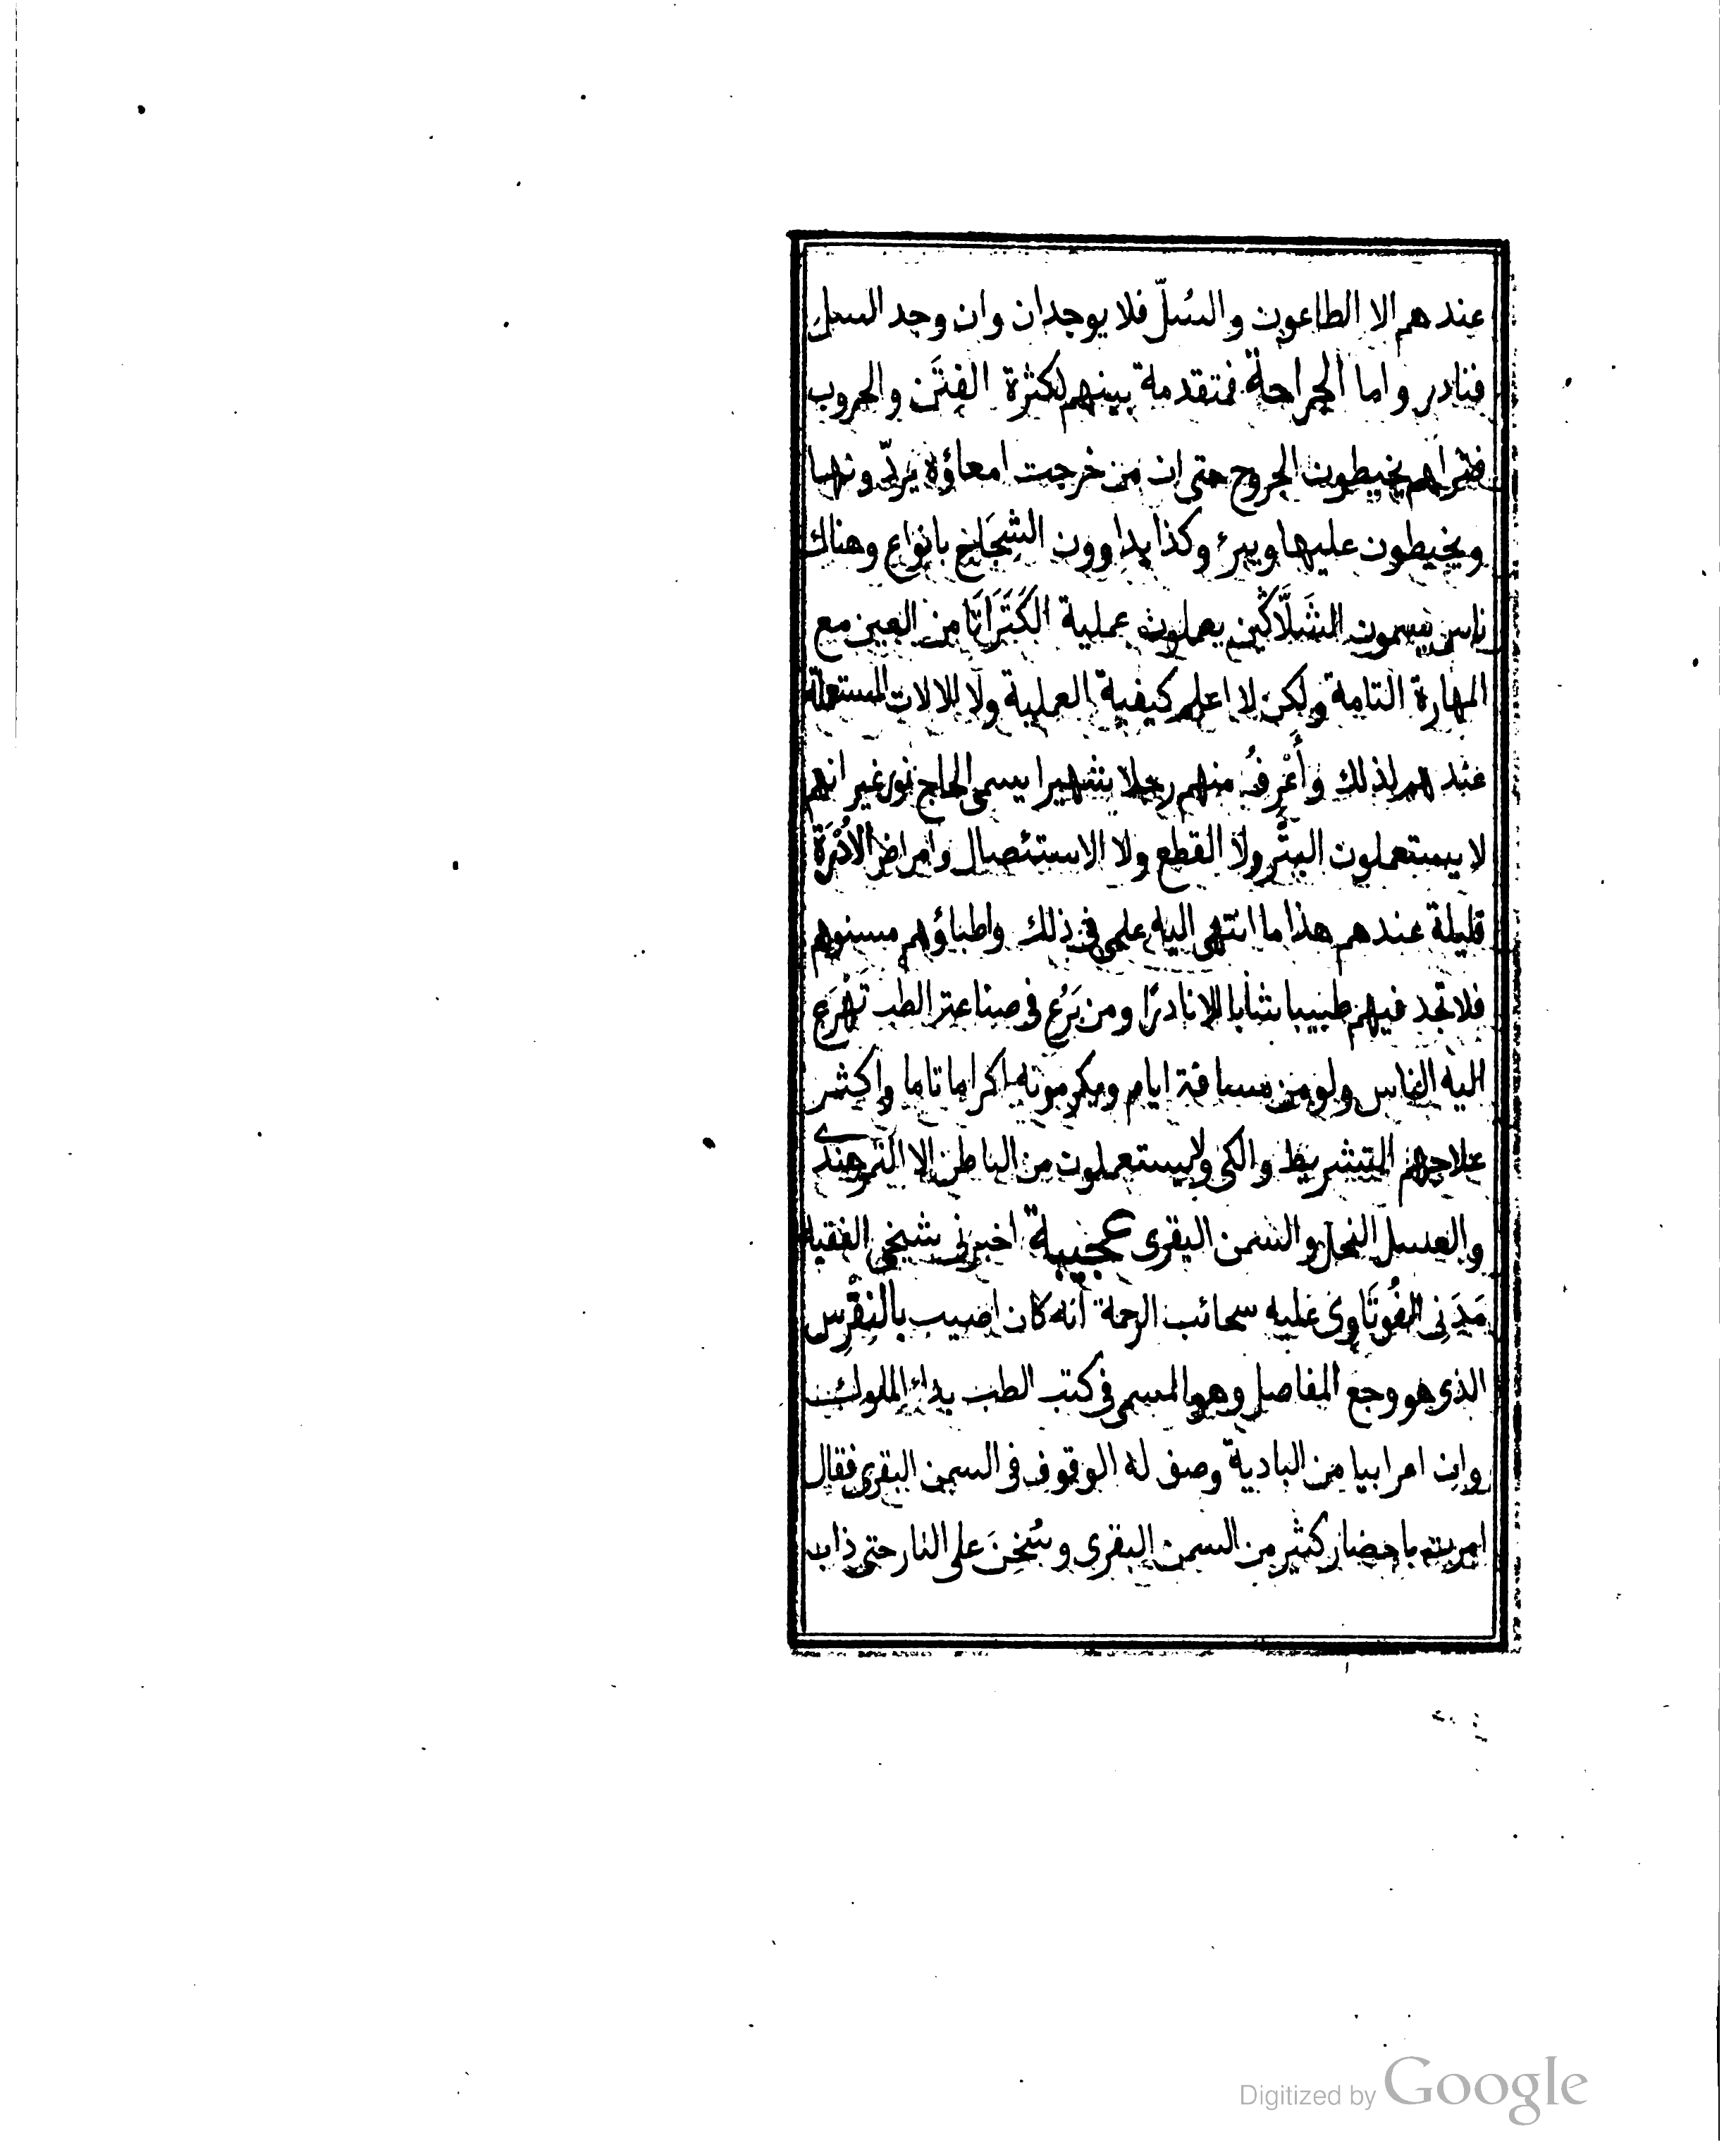 عندهم الا الطاعون والسُلّ فلا يوجدان وان وجد السل
فنادر واما الجراحة فمتقدمة بينهم لكثرة الفِتَن والحروب
فتراهم يخيطون الجروح حتى ان من خرجت امعاؤه يردّونها
ويخيطون عليها ويبرء وكذا يداوون الشِجَاج بانواع وهناك
ناس يسمون الشَلَّاكْين يعملون عملية الكَتَرَاتَا من العين مع
المهارة التامة ولكن لا اعلم كيفية العملية ولا الالات المستعملة
عندهم لذلك وأَعْرِفُ منهم رجلا شهيرا يسمى الحاج نور غير انهم
لا يستعملون البتْر ولا القطع ولا الاستئصال وامراض الأُدْرَة
قليلة عندهم هذا ما انتهى اليه علمى فى ذلك واطباؤهم مسنوهم
فلا تجد فيهم طبيبا شابا الا نادرًا ومن بَرُع فى صناعة الطب تَهْرَع
اليه الناس ولو من مسافة ايام ويكرمونه اكراما تاما واكثر
علاجهم التشريط والكى ولا يستعملون من الباطن الا التمر هندى
والعسل النحل والسمن البقرى عجيبة اخبرنى شيخى الفقيه
مَدَنِى الفُوتَاوِى عليه سحائب الرحمة انه كان اصيب بالنِقْرِس
الذى هو وجع المفاصل وهو المسمى فى كتب الطب بداء الملوك
وان اعرابيا من البادية وصف له الوقوف فى السمن البقرى فقال
امرته باحضار كثير من السمن البقرى وسُخِنَ على النار حتى ذاب
Digitized by Google